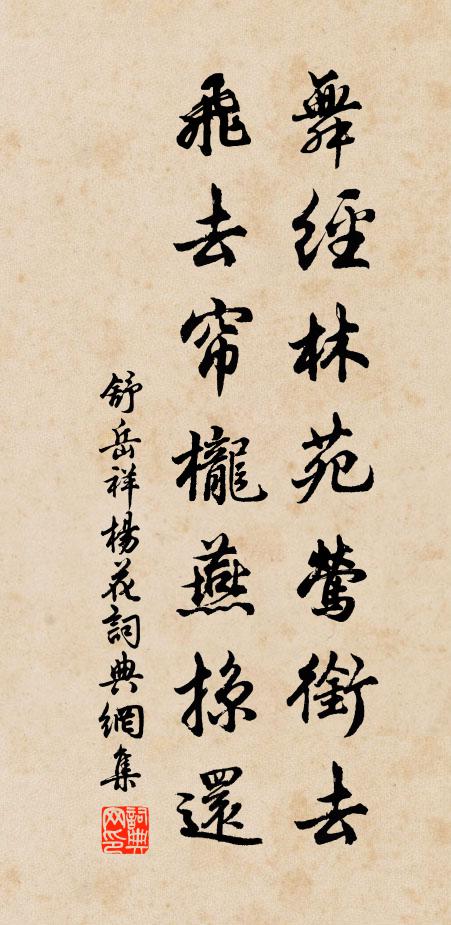 舞經林苑鶯銜去
飛去帘櫳燕掠還
舒岳祥楊花詞典網集
詞典网印